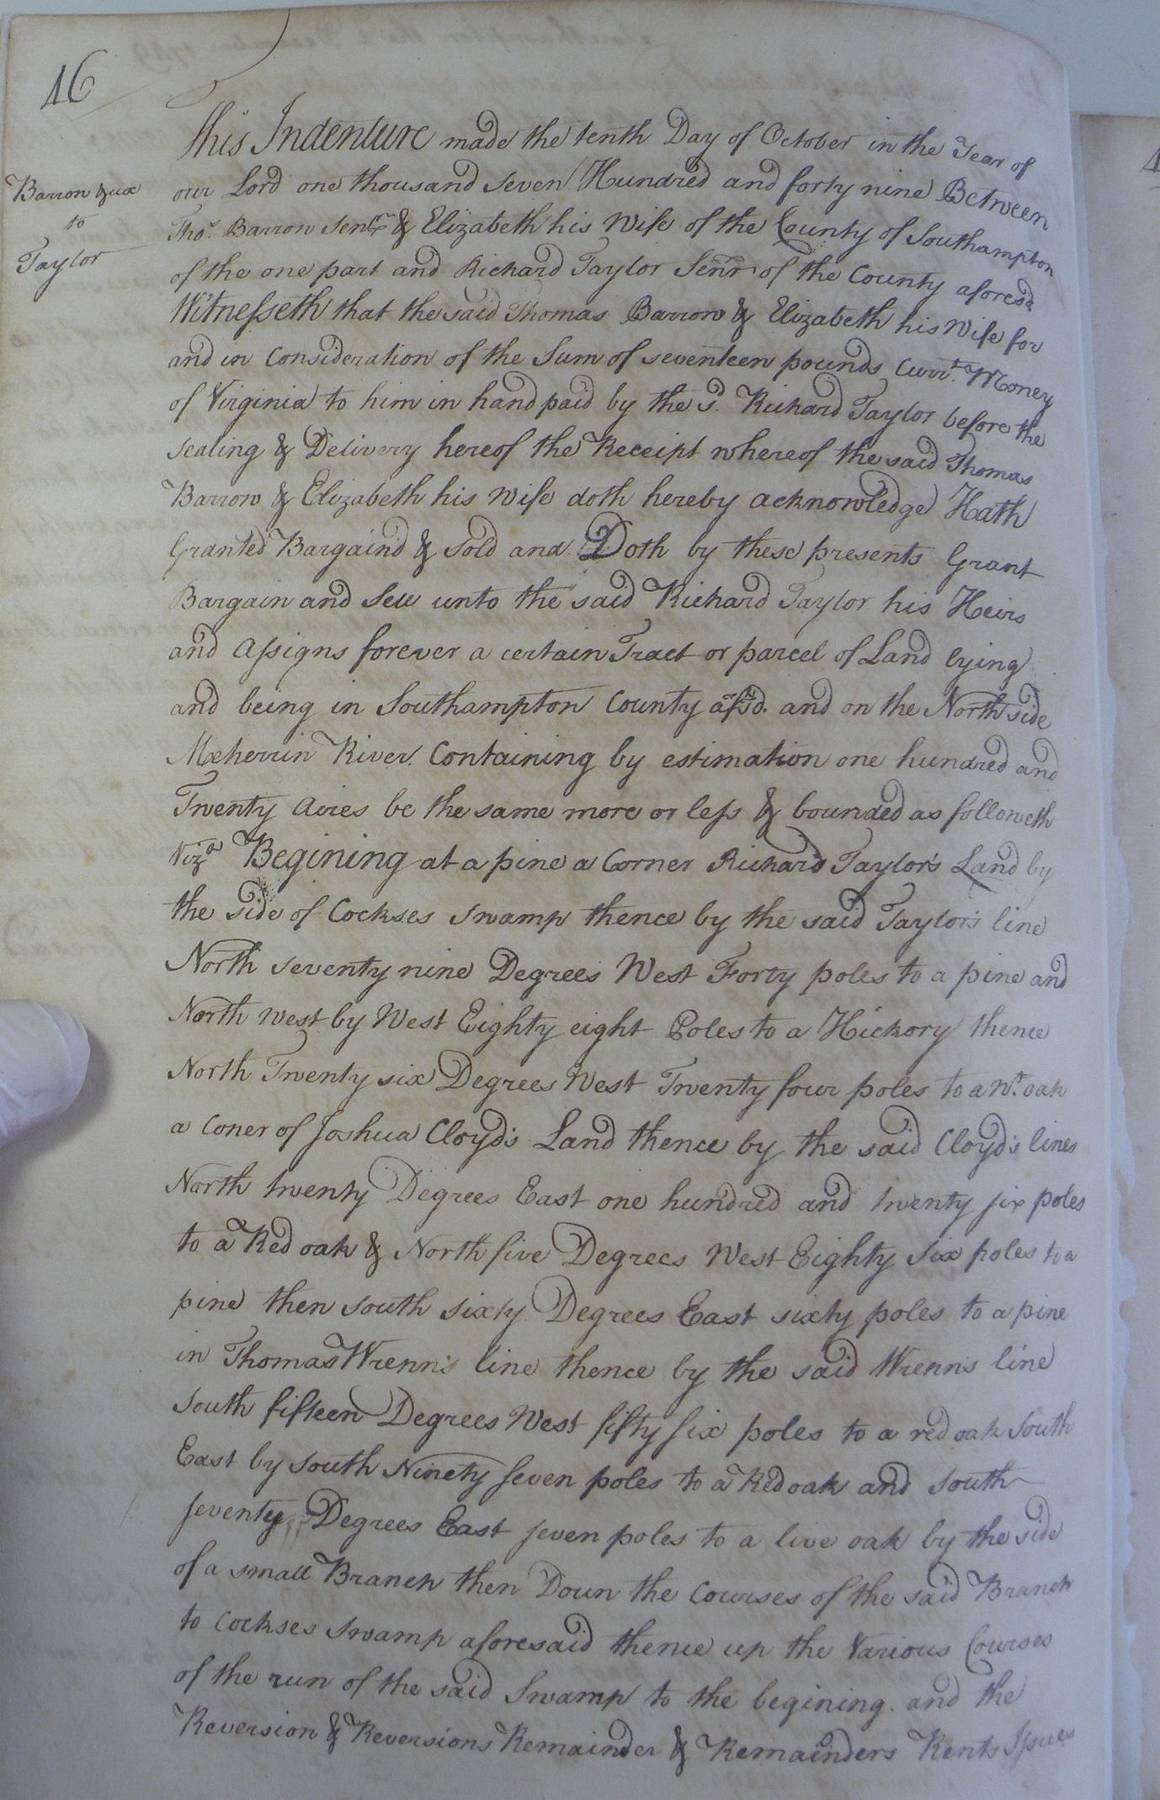 16
Barron & ux
to
Taylor
This Indenture made the tenth Day of October in the Year of
our Lord one thousand seven Hundred and forty nine Between
Thos. Barron Senr. & Elizabeth his Wife of the County of Southampton
of the one part and Richard Taylor Senr of the County aforesd.
Witnesseth that the said Thomas Barron & Elizabeth his Wife for
and in Consideration of the Sum of seventeen pounds Currt. Money
of Virginia to him in hand paid by the sd. Richard Taylor before the
sealing & Delivery hereof the Receipt whereof the said Thomas
Barron & Elizabeth his Wife doth hereby acknowledge Hath
Granted Bargaind & Sold and Doth by these presents Grant
Bargain and Sell unto the said Richard Taylor his Heirs
and Assigns forever a certain Tract or parcel of Land lying
and being in Southampton County afsd. and on the North side
Meherrin River. Containing by estimation one hundred and
Twenty Acres be the same more or less & bounded as followeth
Vizt. Begining at a pine a Corner Richard Taylor's Land by
the side of Cockses Swamp thence by the said Taylor's line
North seventy nine Degrees West Forty poles to a pine and
North West by West Eighty eight Poles to a Hickory thence
North Twenty six Degrees West Twenty four poles to a Wt. oak
a Coner of Joshua Cloyd's Land thence by the said Cloyd's lines
North twenty Degrees East one hundred and twenty six poles
to a Red oak & North five Degrees West Eighty six poles to a
pine then South sixty Degrees East sixty poles to a pine
in Thomas Wrenn's line thence by the said Wrenn's line
South fifteen Degrees West fifty six poles to a red oak South
East by South Ninety seven poles to a Red oak and South
seventy Degrees East seven poles to a live oak by the side
of a small Branch then Doun the Courses of the said Branch
to Cockses Swamp aforesaid thence up the Various Courses
of the run of the said Swamp to the begining. and the
Reversion & Reversions Remainder & Remainders Rents Issues